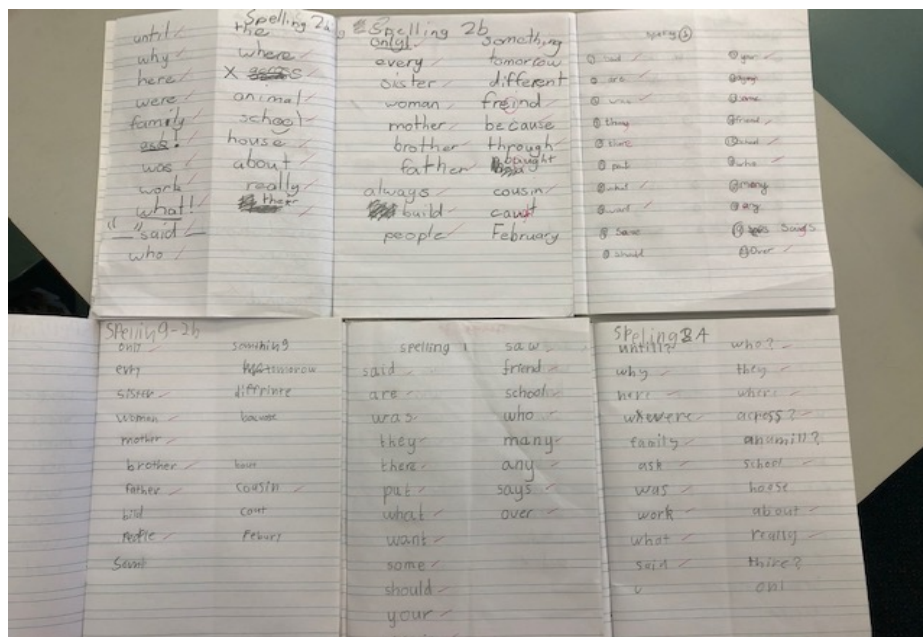 Spelling 2a
until
why
here
were
family
ask!
was
work
what!
" "said
who
the
where
x
animal
school
house
about
really
ther
Spelling 2b
only!
every
sister
woman
mother
brother
father
always
build
people
something
tomorrow
different
freind
because
through
bought
cousin
February
are
thay
there
put
what
want
Same
should
your
Same
friend
school
who
many
any
Says
Over
Spelling-2b
only
evry
sister
women
mother
brother
father
bild
people
tomorow
diffrinte
cousin
spelling 1
said
are
was
they
there
put
what
want
some
should
your
saw
friend
school
who
many
any
says
over
Speling 2A
untill?
why
here
whevere
family
ask
was
work
what
said
who?
they
where
across?
anamill?
school
hoese
about
really
thire?
onl